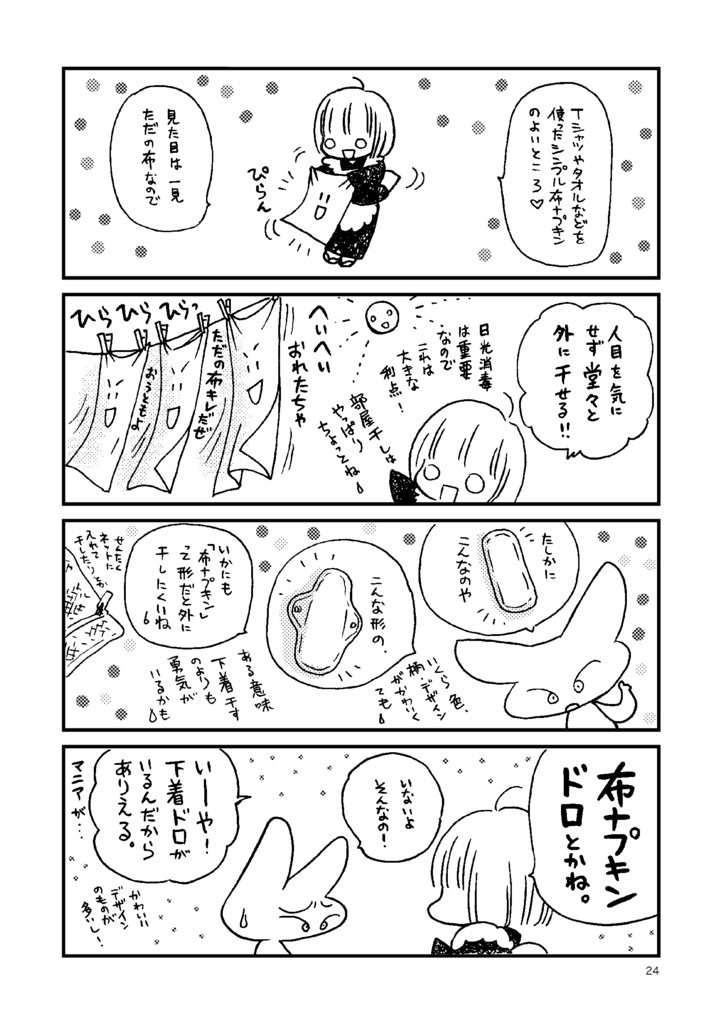 Tシャツやタオルなどを
使ったシンプル布ナプキン
のよいところ♡
ぴらん
見た目は一見
ただの布なので
人目を気に
せず堂々と
外に干せる!!
日光消毒
は重要
なので
これは
大きな
利点!
部屋干しは
やっぱり
ちょっとね
へいへい
おれたちゃ
ただの布キレだぜ
おうともよ
ひら
ひら
ひらっ
たしかに
こんなのや
こんな形の、
いくら色、
柄、デザイン
がかわいく
ても
いかにも
「布ナプキン」
って形だと外に
干したくいね
ある意味
下着干す
のよりも
勇気が
いるかも
せんたく
ネットに
入れて
干したりとか
布ナプキン
ドロとかね。
いないよ
そんなの!
いーや!
下着ドロが
いるんだから
ありえる。
マニアが…
かわいい
デザイン
のものが
多いし!
24